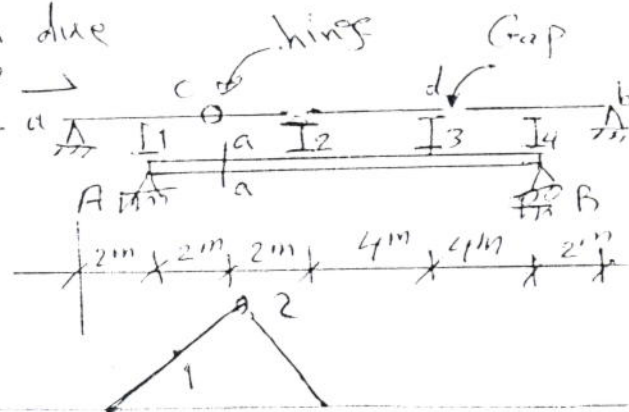 due
hinge
Gap
c
d
a
b
I1
a
I2
I3
I4
a
A
B
2m
2m
2m
4m
4m
2m
2
1